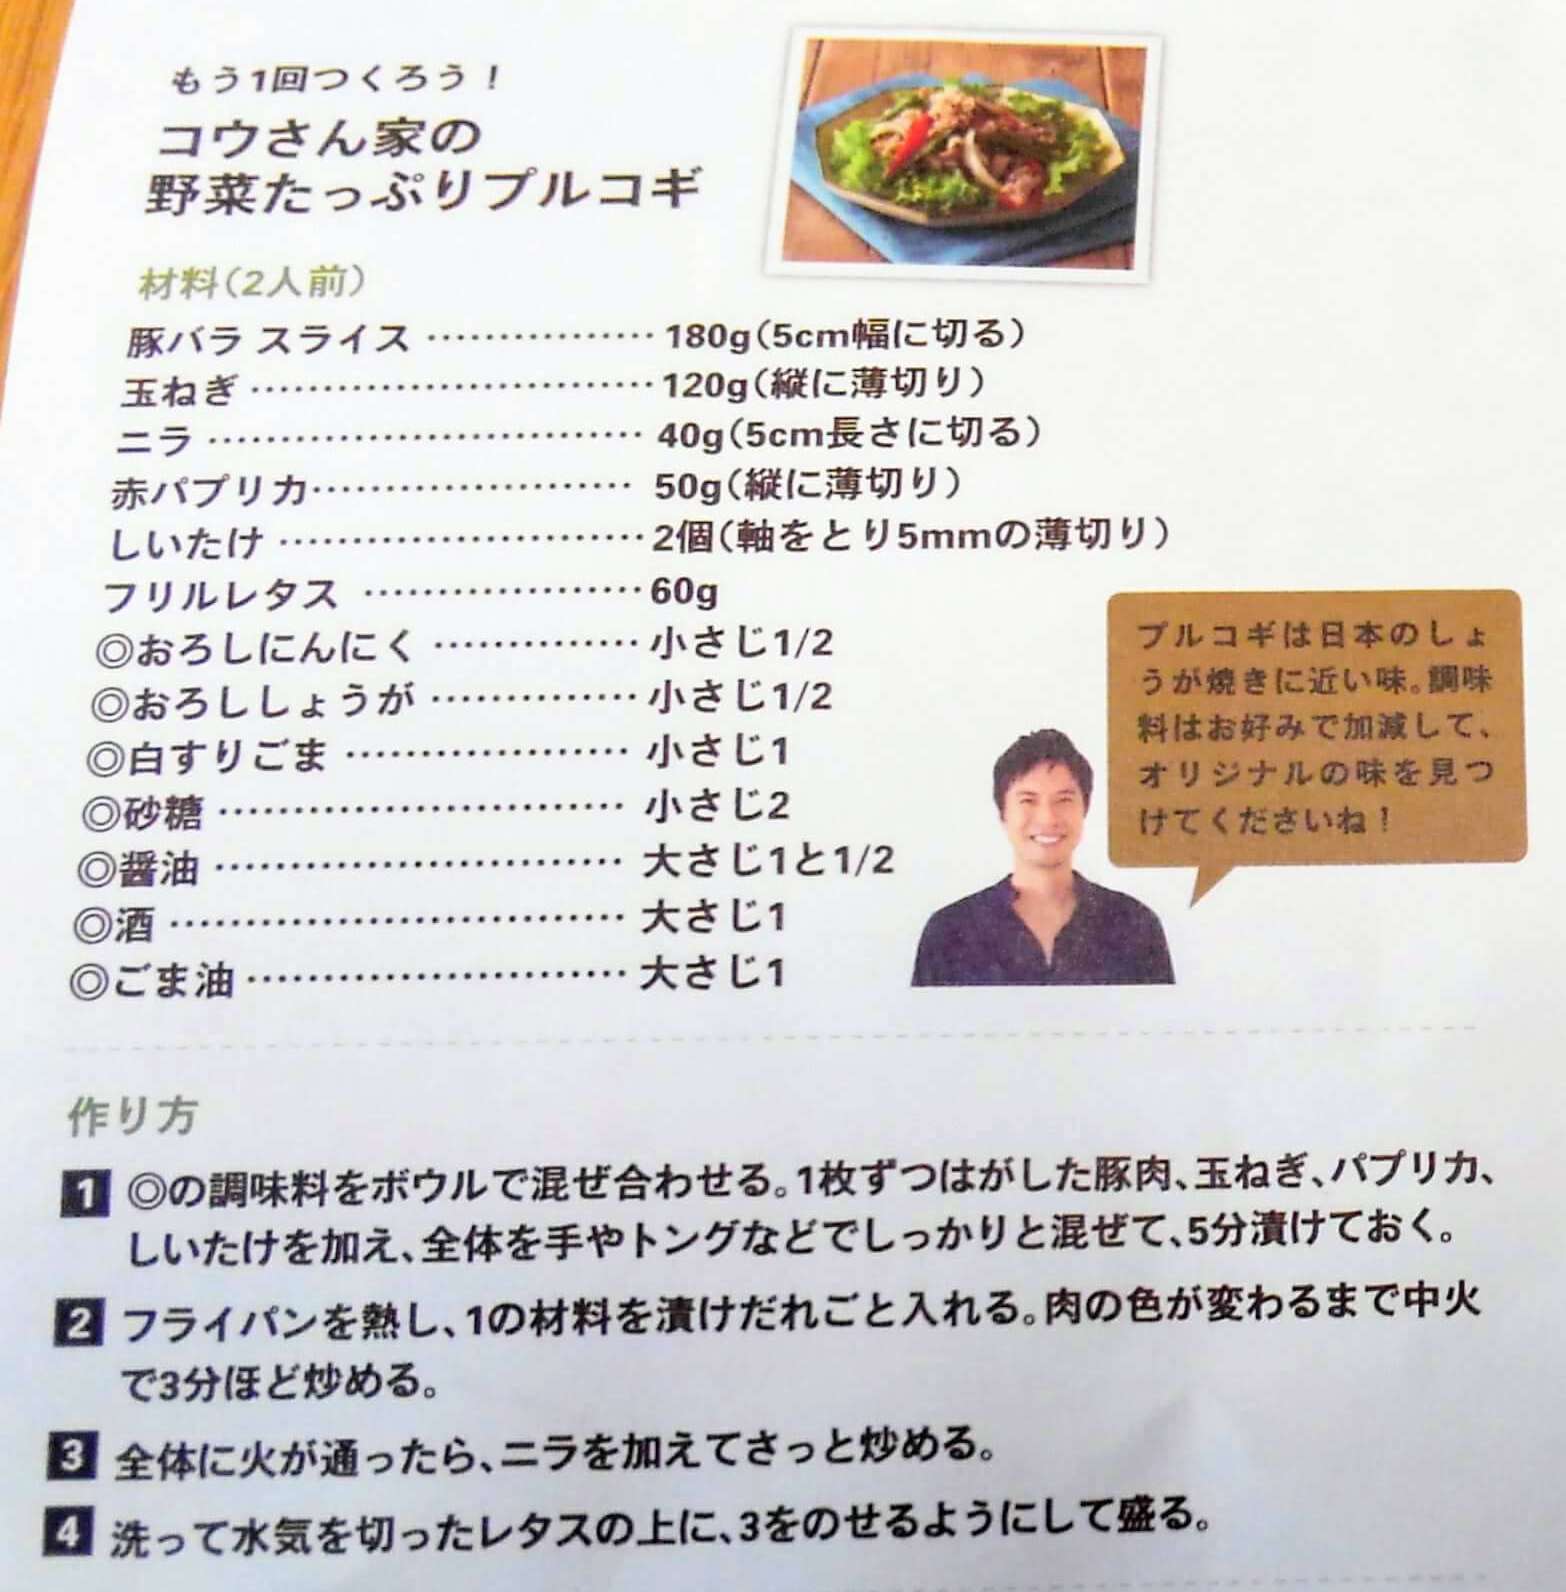 もう1回つくろう！
コウさん家の
野菜たっぷりプルコギ
材料（2人前）
豚バラ スライス ……………… 180g（5cm幅に切る）
玉ねぎ ……………………… 120g（縦に薄切り）
ニラ ………………………… 40g（5cm長さに切る）
赤パプリカ…………………… 50g（縦に薄切り）
しいたけ ……………………… 2個（軸をとり5mmの薄切り）
フリルレタス ………………… 60g
◎おろしにんにく …………… 小さじ1/2
◎おろししょうが …………… 小さじ1/2
◎白すりごま ………………… 小さじ1
◎砂糖 ………………………… 小さじ2
◎醤油 ………………………… 大さじ1と1/2
◎酒 …………………………… 大さじ1
◎ごま油 ……………………… 大さじ1
プルコギは日本のしょ
うが焼きに近い味。調味
料はお好みで加減して、
オリジナルの味を見つ
けてくださいね！
作り方
1 ◎の調味料をボウルで混ぜ合わせる。1枚ずつはがした豚肉、玉ねぎ、パプリカ、
しいたけを加え、全体を手やトングなどでしっかりと混ぜて、5分漬けておく。
2 フライパンを熱し、1の材料を漬けだれごと入れる。肉の色が変わるまで中火
で3分ほど炒める。
3 全体に火が通ったら、ニラを加えてさっと炒める。
4 洗って水気を切ったレタスの上に、3をのせるようにして盛る。